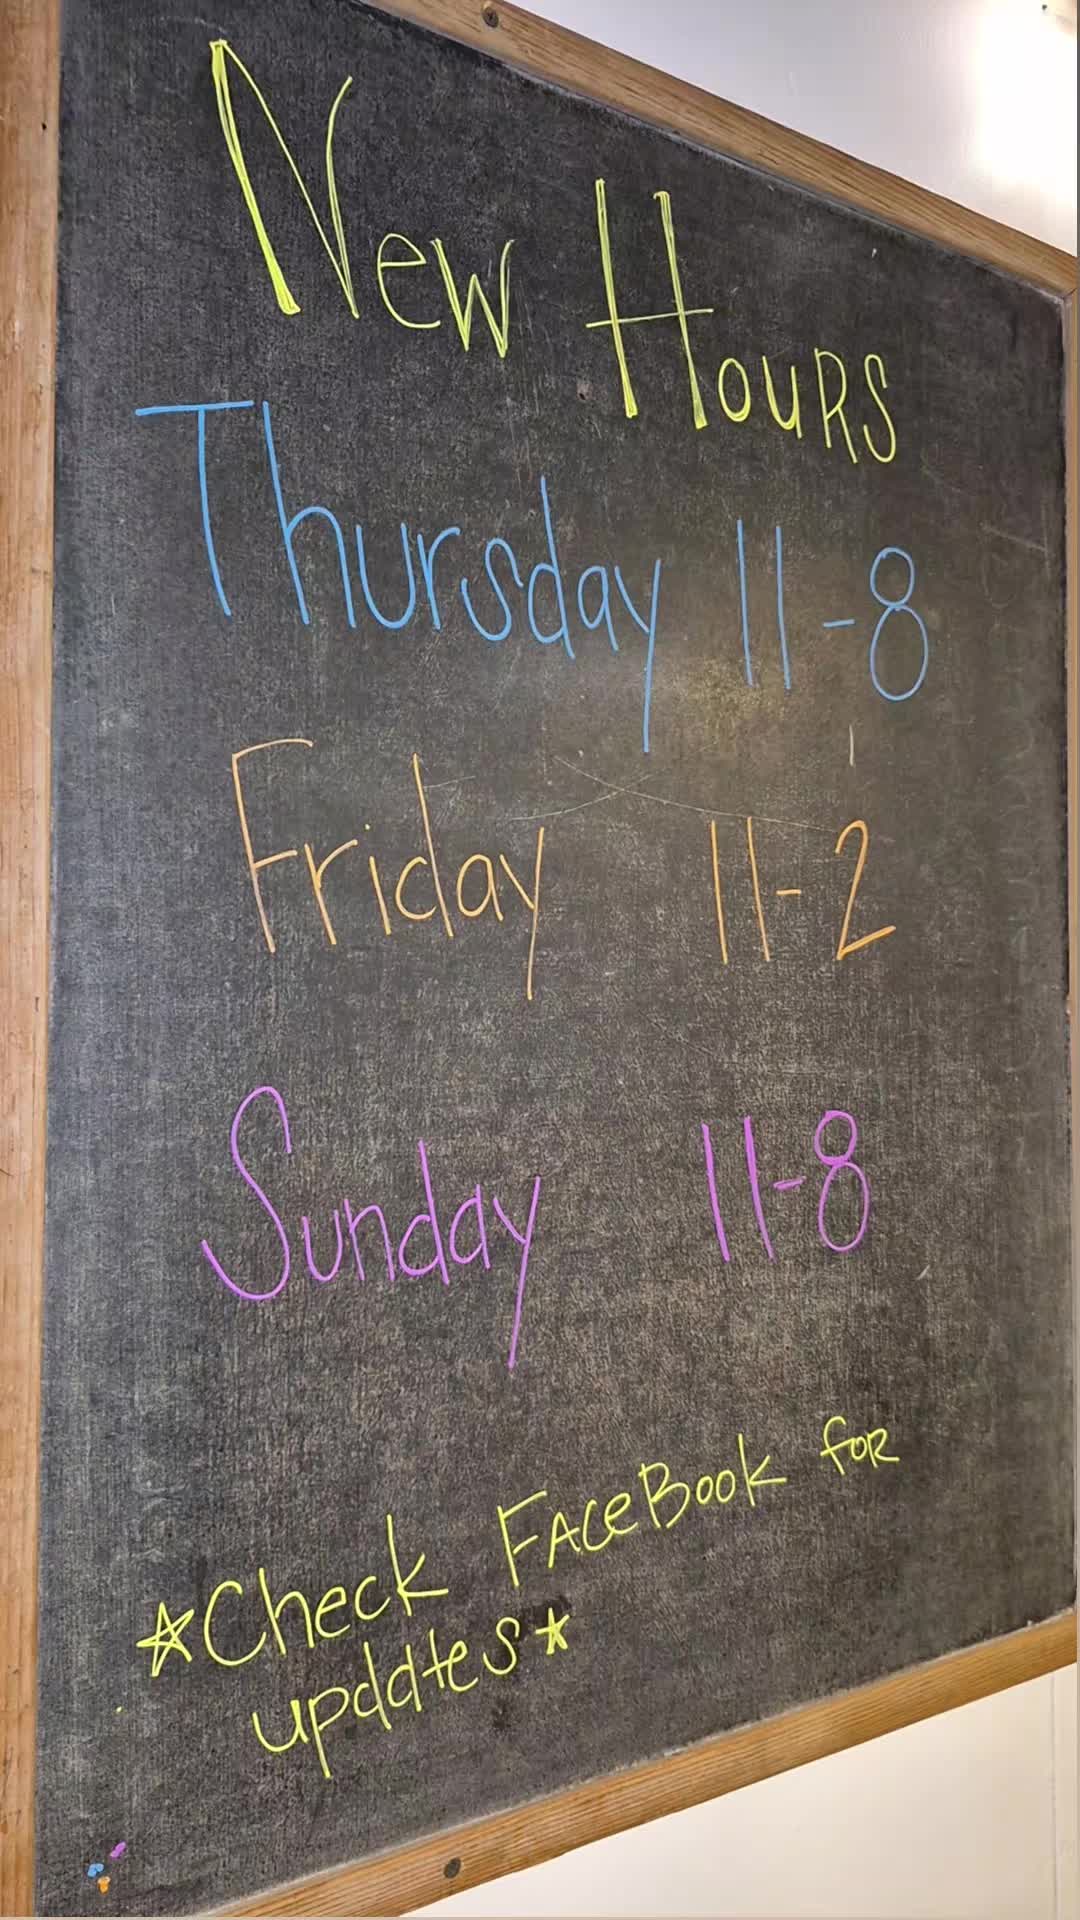 New Hours
Thursday 11-8
Friday 11-2
Sunday 11-8
☆Check FaceBook for
updates☆